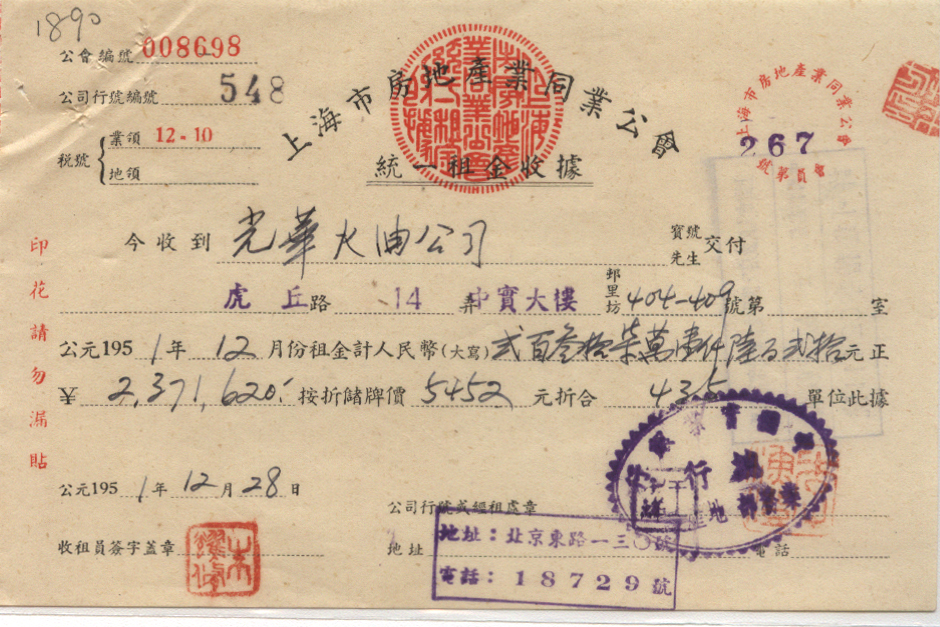 1890
公會編號 008698
公司行號編號 548
稅號 業領 12-10
地領
上海市房地產業同業公會
統一租金收據
上海市房地產業同業公會
267
號第員
印花請勿漏貼
今收到 光華火油公司 寶號 先生 交付
虎丘路 14 弄 中實大樓 邨里坊 404-409 號第 室
公元1951年12月份租金計人民幣(大寫)弍百叁拾柒萬壹仟陸百弍拾元正
2,371,620 按折儲牌價 5452 元折合 435 單位此據
公元1951年12月28日
公司行號或經租處章
收租員簽字蓋章 地址 電話
地址：北京東路一三〇號
電話：18729號